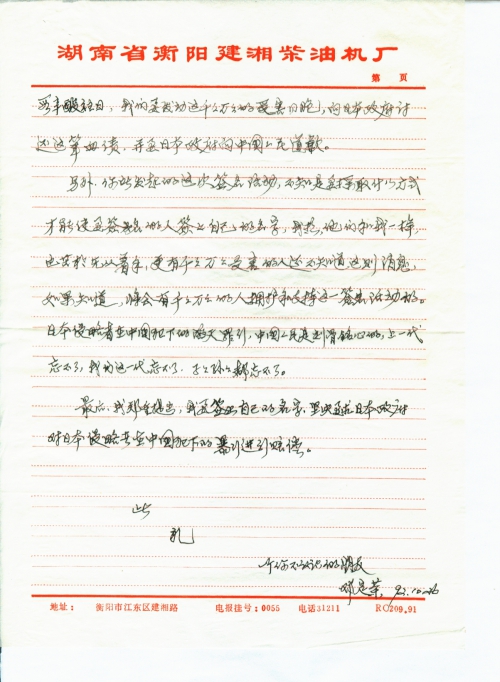 湖南省衡阳建湘柴油机厂
第 页
我们要发动这千千万万的受害同胞,向日本政府讨
还这笔血债,并要日本政府向中国人民道歉。
另外,你所发起的这次签名活动,不知是采取什么方式
才能使要签名的人签上自己的名字,我想,他们和我一样,
也苦于无从着手,更有千千万万受害的人还不知道这则消息,
如果知道,将会有千千万万的人拥护和支持这一签名活动的。
日本侵略者在中国犯下的滔天罪行,中国人民是刻骨铭心的,上一代
忘不了,我们这一代忘不了,子子孙孙都忘不了。
最后,我郑重提出,我要签上自己的名字,坚决要求日本政府
对日本侵略者在中国犯下的罪行进行赔偿。
此
礼
一个你不认识的朋友
地址: 衡阳市江东区建湘路 电报挂号:0055 电话31211 RC209.91